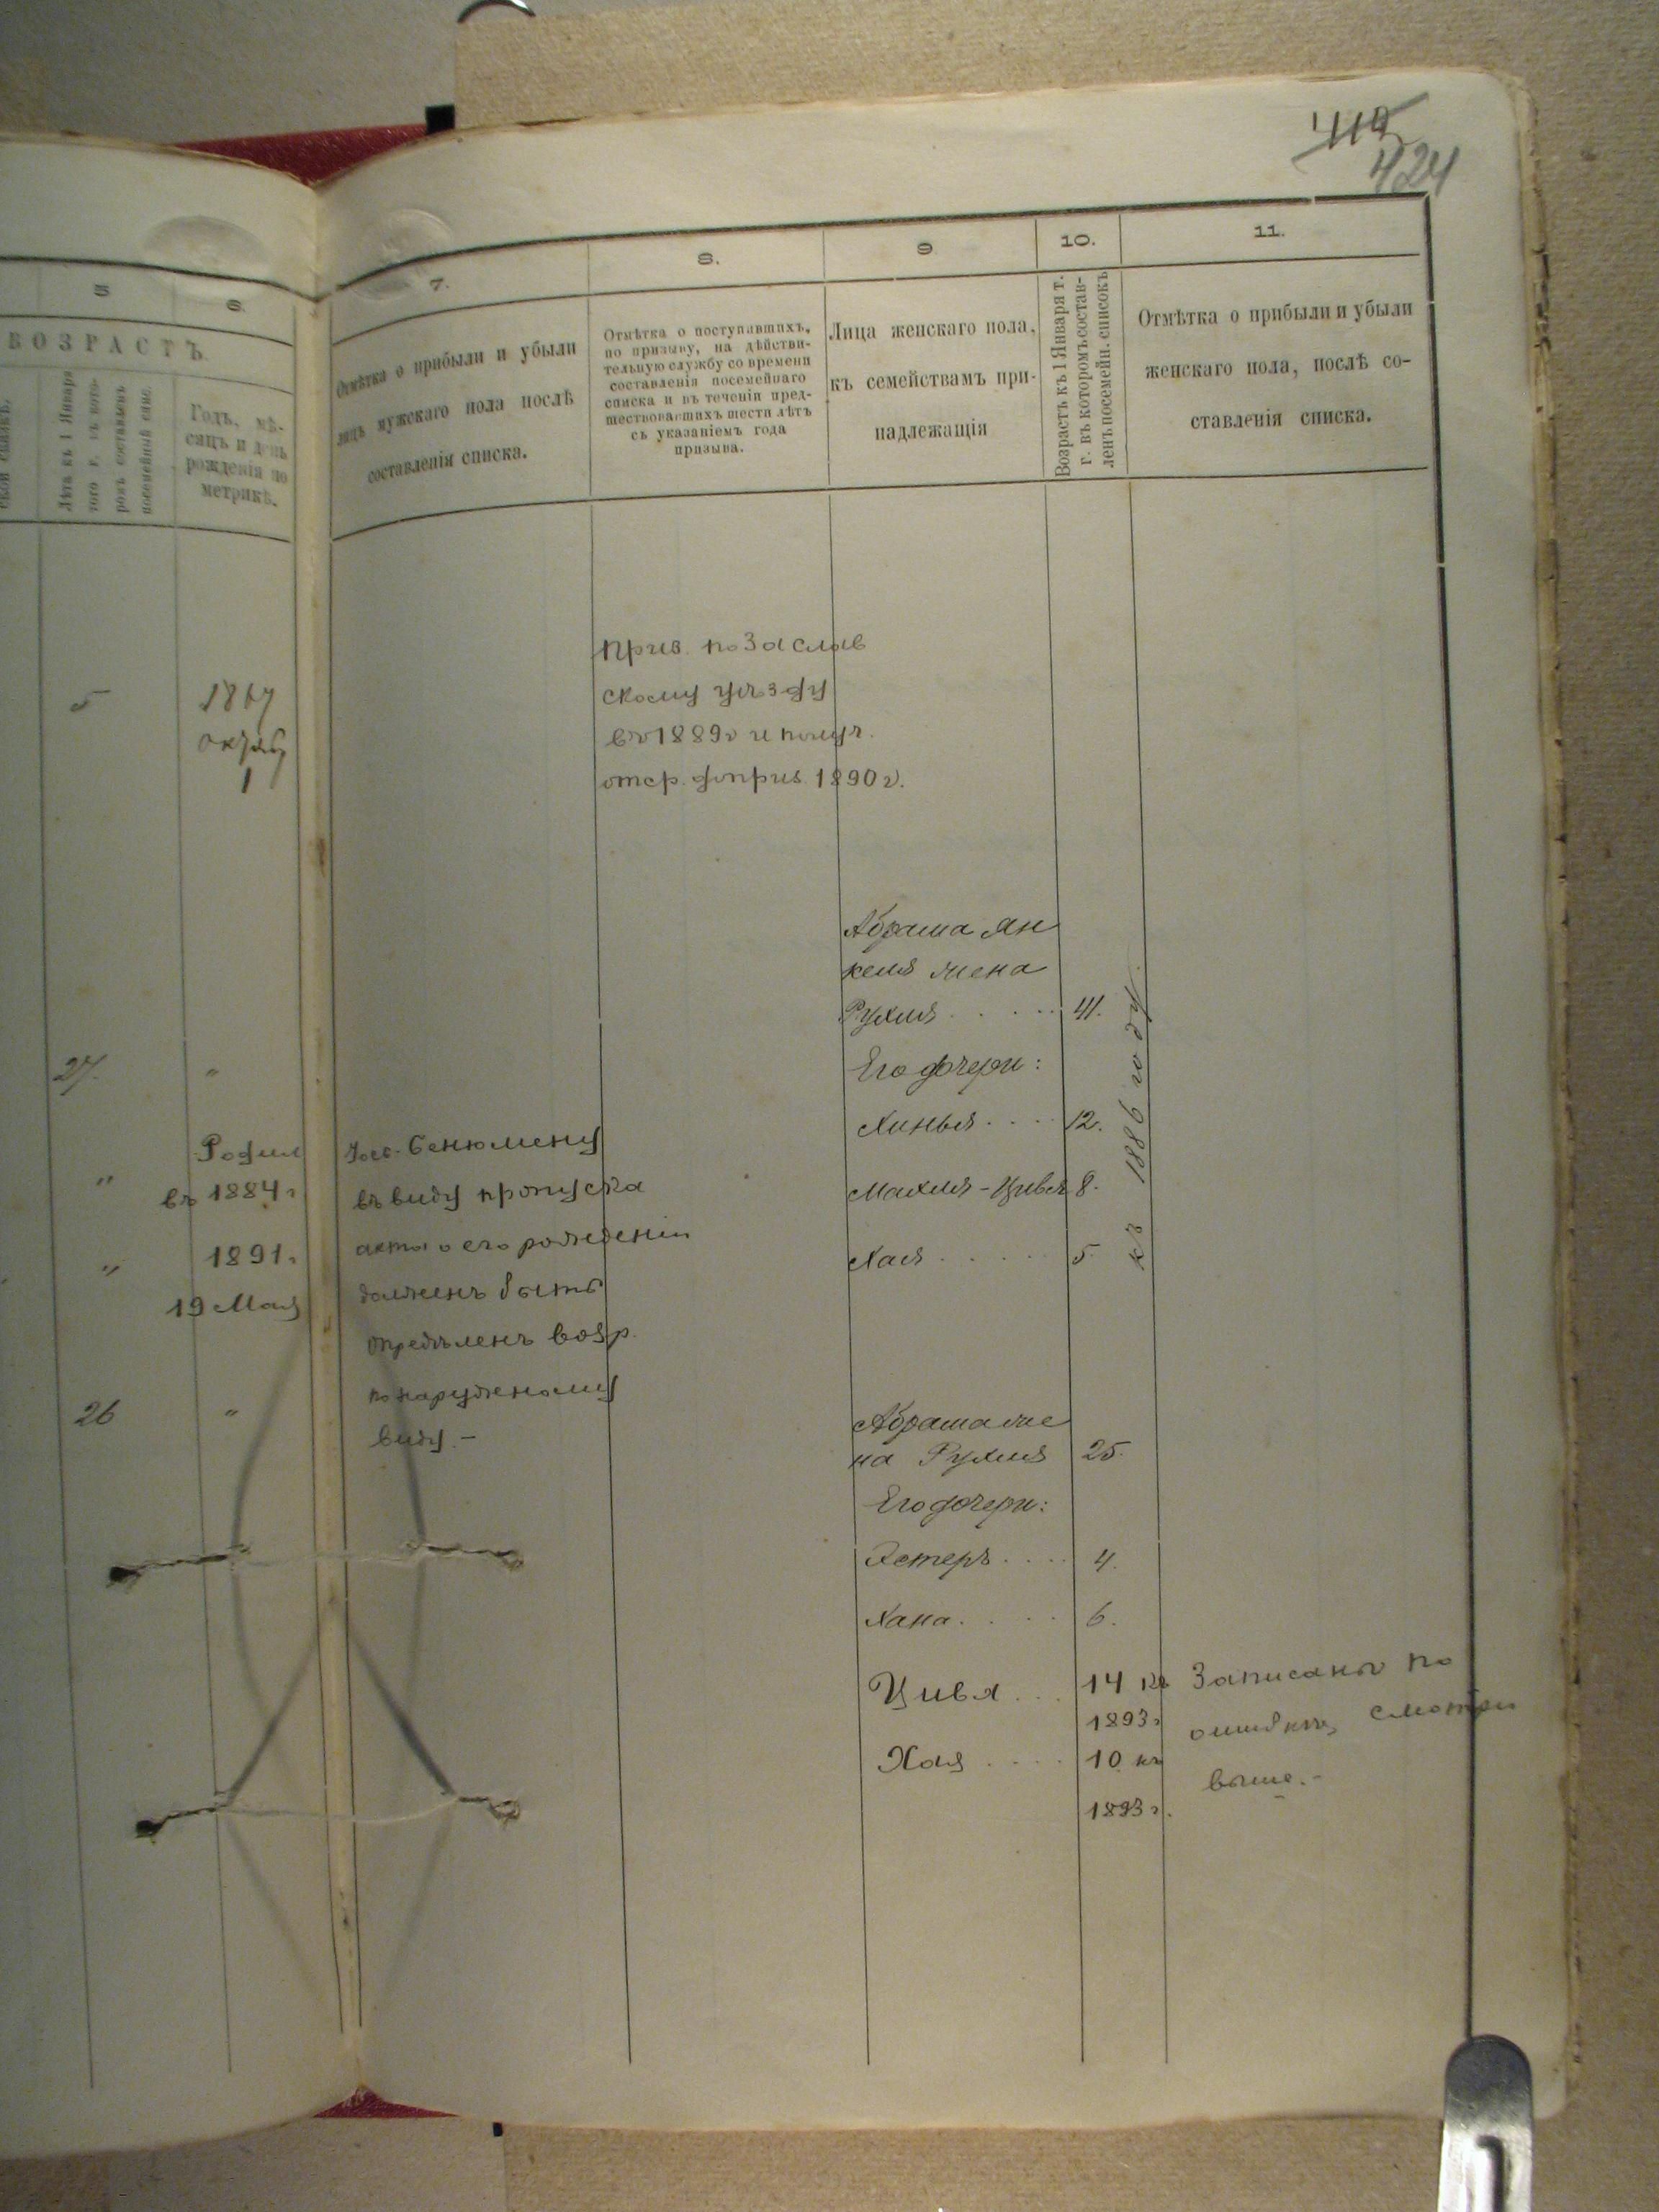 419
424
5
6.
7.
8.
9
10.
11.
ВОЗРАСТЪ.
Лѣта къ 1 Января
того г. въ кото-
ромъ составленъ
посемейный спис.
Годъ, мѣ-
сяцъ и день
рожденія по
метрикѣ.
Отмѣтка о прибыли и убыли
лицъ мужскаго пола послѣ
составленія списка.
Отмѣтка о поступавшихъ,
по призыву, на дѣйстви-
тельную службу со времени
составленія посемейнаго
списка и въ теченіи пред-
шествовавшихъ шести лѣтъ
съ указаніемъ года
призыва.
Лица женскаго пола,
къ семействамъ при-
надлежащія
Возрастъ къ 1 Января т.
г. въ которомъ состав-
ленъ посемейн. списокъ
Отмѣтка о прибыли и убыли
женскаго пола, послѣ со-
ставленія списка.
5
1867
октяб
1
приз. по Заслав
скому уѣзду
въ 1889г и получ.
отср. до приз. 1890 г.
27.
"
"
Родил
въ 1884 г
"
1891 г
19 Мая
26
"
Бенюмену
въ виду пропуска
акта о его рожденіи
долженъ быть
опредѣленъ возр.
по наружному
виду. -
Абрама Ян
келя жена
Рухля . . . . . 41.
Его дочери:
Хинья . . . . 12.
Махля-Цивья 8.
Хая . . . . . 5.
къ 1886 году.
Абрама же
на Рухля 25.
Его дочери:
Эстеръ . . . . 4.
Хана . . . . 6.
Цивя . . . 14 къ
1893 г
Хая . . . . 10 къ
1893 г.
Записаны по
ошибкѣ, смотри
выше. -